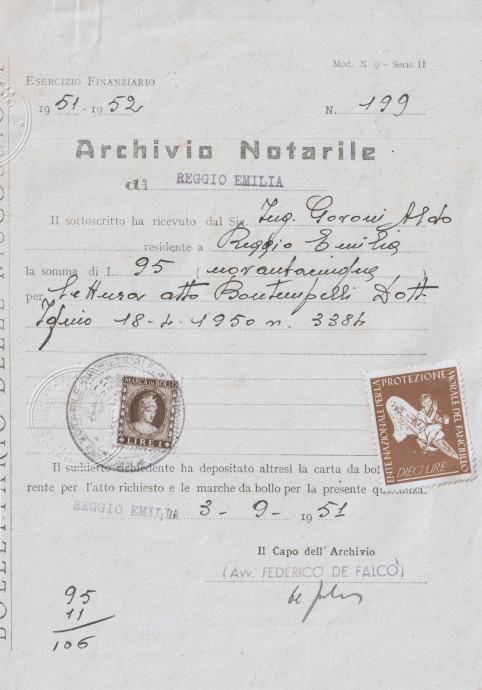 Mod. N 9 - Serie II
ESERCIZIO FINANZIARIO
1951 - 1952
N. 199
Archivio Notarile
di REGGIO EMILIA
Il sottoscritto ha ricevuto dal Sig. Ing. Goroni Aldo
residente a Reggio Emilia
la somma di L. 95 (novantacinque)
per lettura atto Bontempelli Dott.
Iginio 18-4-1950 n. 3384
MARCA DA BOLLO
LIRE 1
ENTE NAZIONALE PER LA PROTEZIONE MORALE DEL FANCIULLO
DIECI LIRE
Il suddetto richiedente ha depositato altresì la carta da bol
rente per l'atto richiesto e le marche da bollo per la presente quietanza.
REGGIO EMILIA 3-9-1951
Il Capo dell'Archivio
(Avv. FEDERICO DE FALCO)
95
11
106